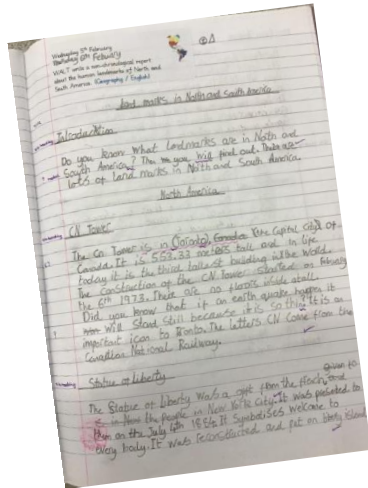 Wednesday 5th February
Thursday 6th February
WALT write a non-chronological report
about the human landmarks of North and
South America. (Geography / English)
land marks in North and South America
Introduction
Do you know what landmarks are in North and
South America? Then you will find out. There are
lots of land marks in North and South America.
North America
CN Tower
The Cn Tower is in Toronto, the Capital City of
Canada. It is 553.33 meters tall and in life
today it is the third tallest building in the World.
The construction of the C.N. Tower started on February
the 6th 1973. There are no floors inside at all.
Did you know that if an earth quake happen it
will stand still because it is so thin? It is an
important icon to Toronto. The letters CN Come from the
Canadian National Railway.
Statue of liberty
The Statue of Liberty was a gift from the french, given to
the people in New York City. It was presented to
them on the July 4th 1884. It Symbolises welcome to
every body. It was reconstructed and put on liberty island